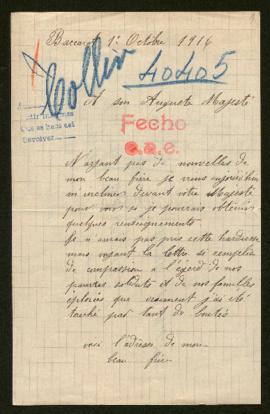 Baccarat 1er Octobre 1916
Collin
40405
A son Auguste Majesté
Fecho
a.a.e.
Devolver
N'ayant pas de nouvelles de
mon beau frère je viens
m'incliner devant votre Majesté
pour voir si je pourrais obtenir
quelques renseignements
Je n'aurais pas pris cette hardiesse
mais voyant la lettre si remplie
de compassion à l'égard de nos
pauvres soldats et de nos familles
éplorées que vraiment j'ai été
touché par tant de bontés
voici l'adresse de mon
beau frère